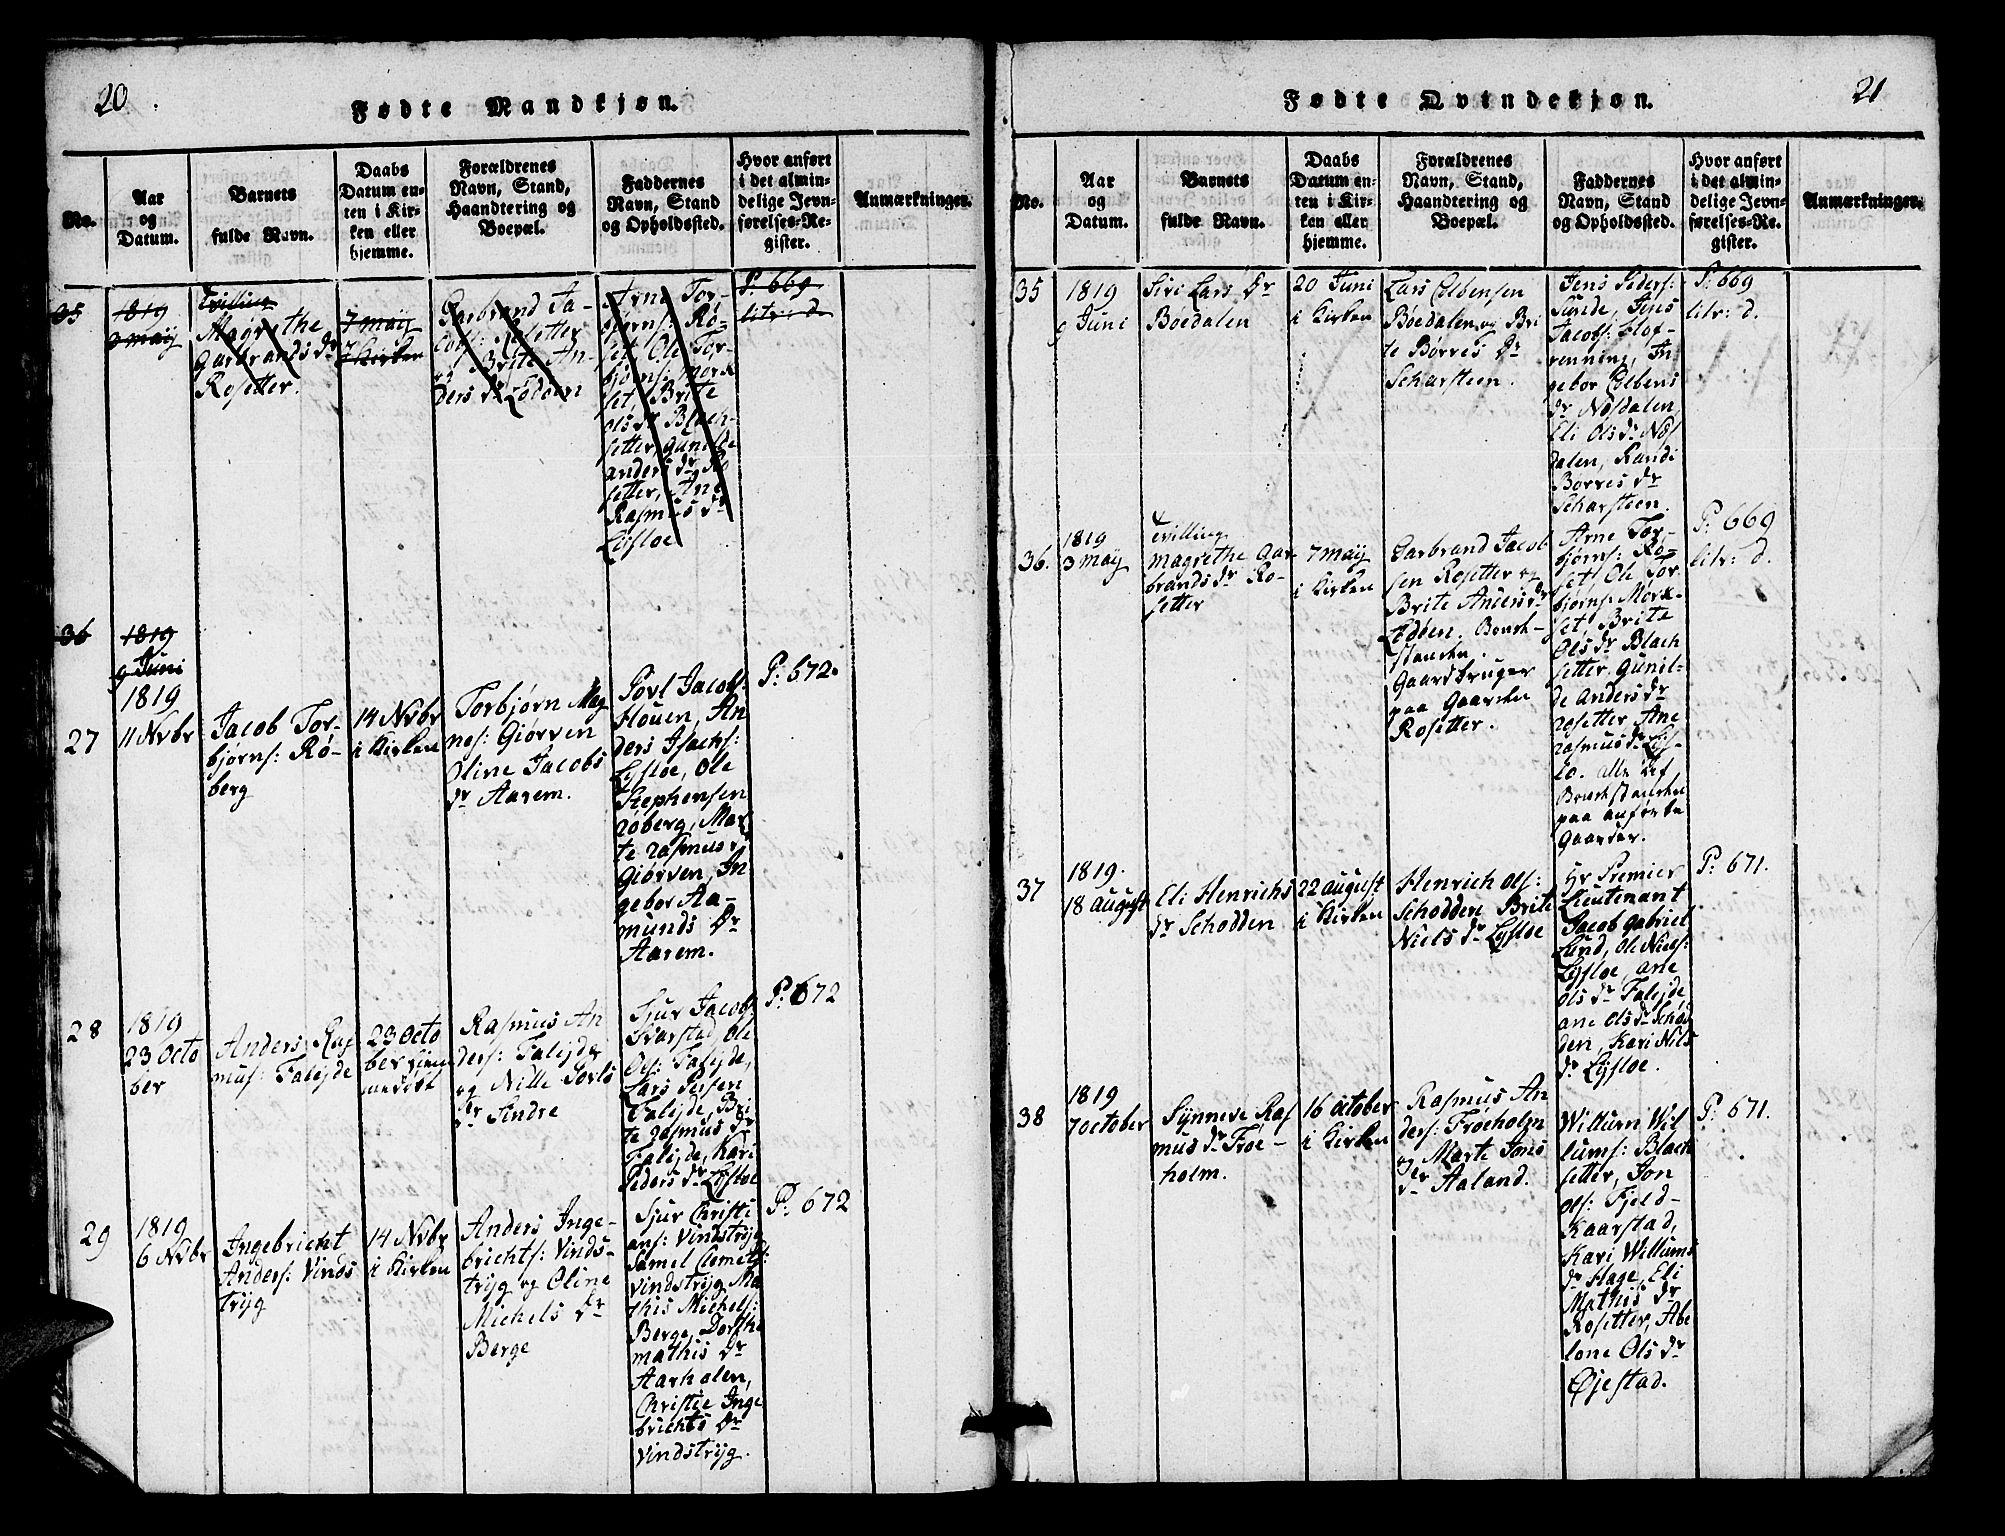 20.
Fødte Mandkjøn.
No.
Aar
og
Datum.
Barnets
fulde Navn.
Daabs
Datum en-
ten i Kir-
ken eller
hjemme.
Forældrenes
Navn, Stand,
Haandtering og
Boepæl.
Faddernes
Navn, Stand
og Opholdssted.
Hvor anført
i det almin-
delige Jevn-
førelses-Re-
gister.
Anmærkninger.
35
1819
3 maÿ
Tvilling
Magrethe
Garbrands dr
Rosetter.
7 maÿ
i Kirken
Garbrand Ja-
cobs: Rosetter
og Brite An-
ders dr Lødøen
Arne Tor-
bjørns: Rø-
set, Ole Tor-
bjørns: Mork-
set, Brite
Ols dr Blach-
setter, Gunilde
anders dr Ro
setter, Ane
Rasmus dr
Lÿsloe
P: 669
litr: d
36
1819
9 Juni
27
1819
11 Nvbr
Jacob Tor-
bjørns: Rø-
berg
14 Nvbr
i Kirken
Torbjørn Mag
nes: Giørven
Oline Jacobs
dr Aarem.
Povl Jacobs:
Houen, An
ders Isachs:
Lÿsloe, Ole
Stephensen
røberg, Mar
te rasmus dr
Giørven, In
gebor Aa-
munds dr
Aarem.
P: 672.
28
1819
23 Octo
ber
Anders Ras
mus: Taleÿde
23 Octo
ber hjem
medøbt
Rasmus An
ders: Taleÿde
og Nille Povls
dr Sindre
Sjur Jacobs:
Svarstad, Ole
Ols: Taleÿde,
Lars Persen
Taleÿde, Bri
te rasmus dr
Taleÿde, Kari
Peders dr Lÿsloe
P: 672
29
1819
6 Nvbr
Ingebricht
Anders: Vinds
trÿg
14 Nvbr
i Kirken
Anders Inge-
brichts: Vinds-
trÿg og Oline
Michels dr
Berge
Sjur Christi
ans: Vindstrÿg
Samel Clemets:
Vindstrÿg Ma
this Michels:
Berge, Dorthe
mathis dr
Aarholen,
Christie Inge
brichts dr
Vindstrÿg.
P: 672
21
Fødte Qvindekjøn.
No.
Aar
og
Datum.
Barnets
fulde Navn.
Daabs
Datum en-
ten i Kir-
ken eller
hjemme.
Forældrenes
Navn, Stand,
Haandtering og
Boepæl.
Faddernes
Navn, Stand
og Opholdssted.
Hvor anført
i det almin-
delige Jevn-
førelses-Re-
gister.
Anmærkninger.
35
1819
9 Juni
Siri Lars dr
Bøedalen
20 Juni
i Kirken
Lars Colbensen
Bøedalen og Bri
te Børres dr
Scharsteen.
Jens Peders:
Sunde, Jens
Jacobs: Flof-
renning, In
gebor Colbens
dr Nosdalen,
Eli Ols dr Nos
dalen, Randi
Børres dr
Scharsteen.
P: 669
litr: d.
36.
1819
3 maÿ
Tvilling
Magrethe Gar
brands dr Ro-
setter
7 maÿ
i Kirken
Garbrand Jacob
sen Rosetter og
Brite Anders dr
Lødøen. Bonde-
standen.
Gaardbruger
paa Gaarden
Rosetter.
Arne Tor-
bjørns: Rø-
set, Ole Tor
bjørns: Mork-
set Brite
Ols dr Blach
setter Gunil-
de anders dr
rosetter Ane
rasmus dr Lÿs-
lo. alle af
Bondestanden
paa anførte
Gaarder.
P: 669
litr: d.
37
1819.
18 august
Eli Henrichs
dr Schodden
22 august
i Kirken
Henrich ols:
Schodden Brite
Niels dr Lÿsloe
Hr Premier
Lieutenant
Jacob gabriel
Lund, Ole Niels:
Lÿsloe, ane
ols dr Taleÿde
ane ols dr Schod
den, Kari Nils
dr Lÿsloe.
P: 671.
38
1819
7 october
Sÿnneve Ras
mus dr Froe-
holm.
16 october
i Kirken
Rasmus An
ders: Froeholm
og Marte Jons
dr Aaland.
Willum Wil
lums: Blach
setter, Jon
ols: Fjeld-
Kaarstad,
Kari Willums
dr Hage, Eli
Mathis dr
Rosetter, Abe
lone Ols dr
Øjestad.
P: 671.